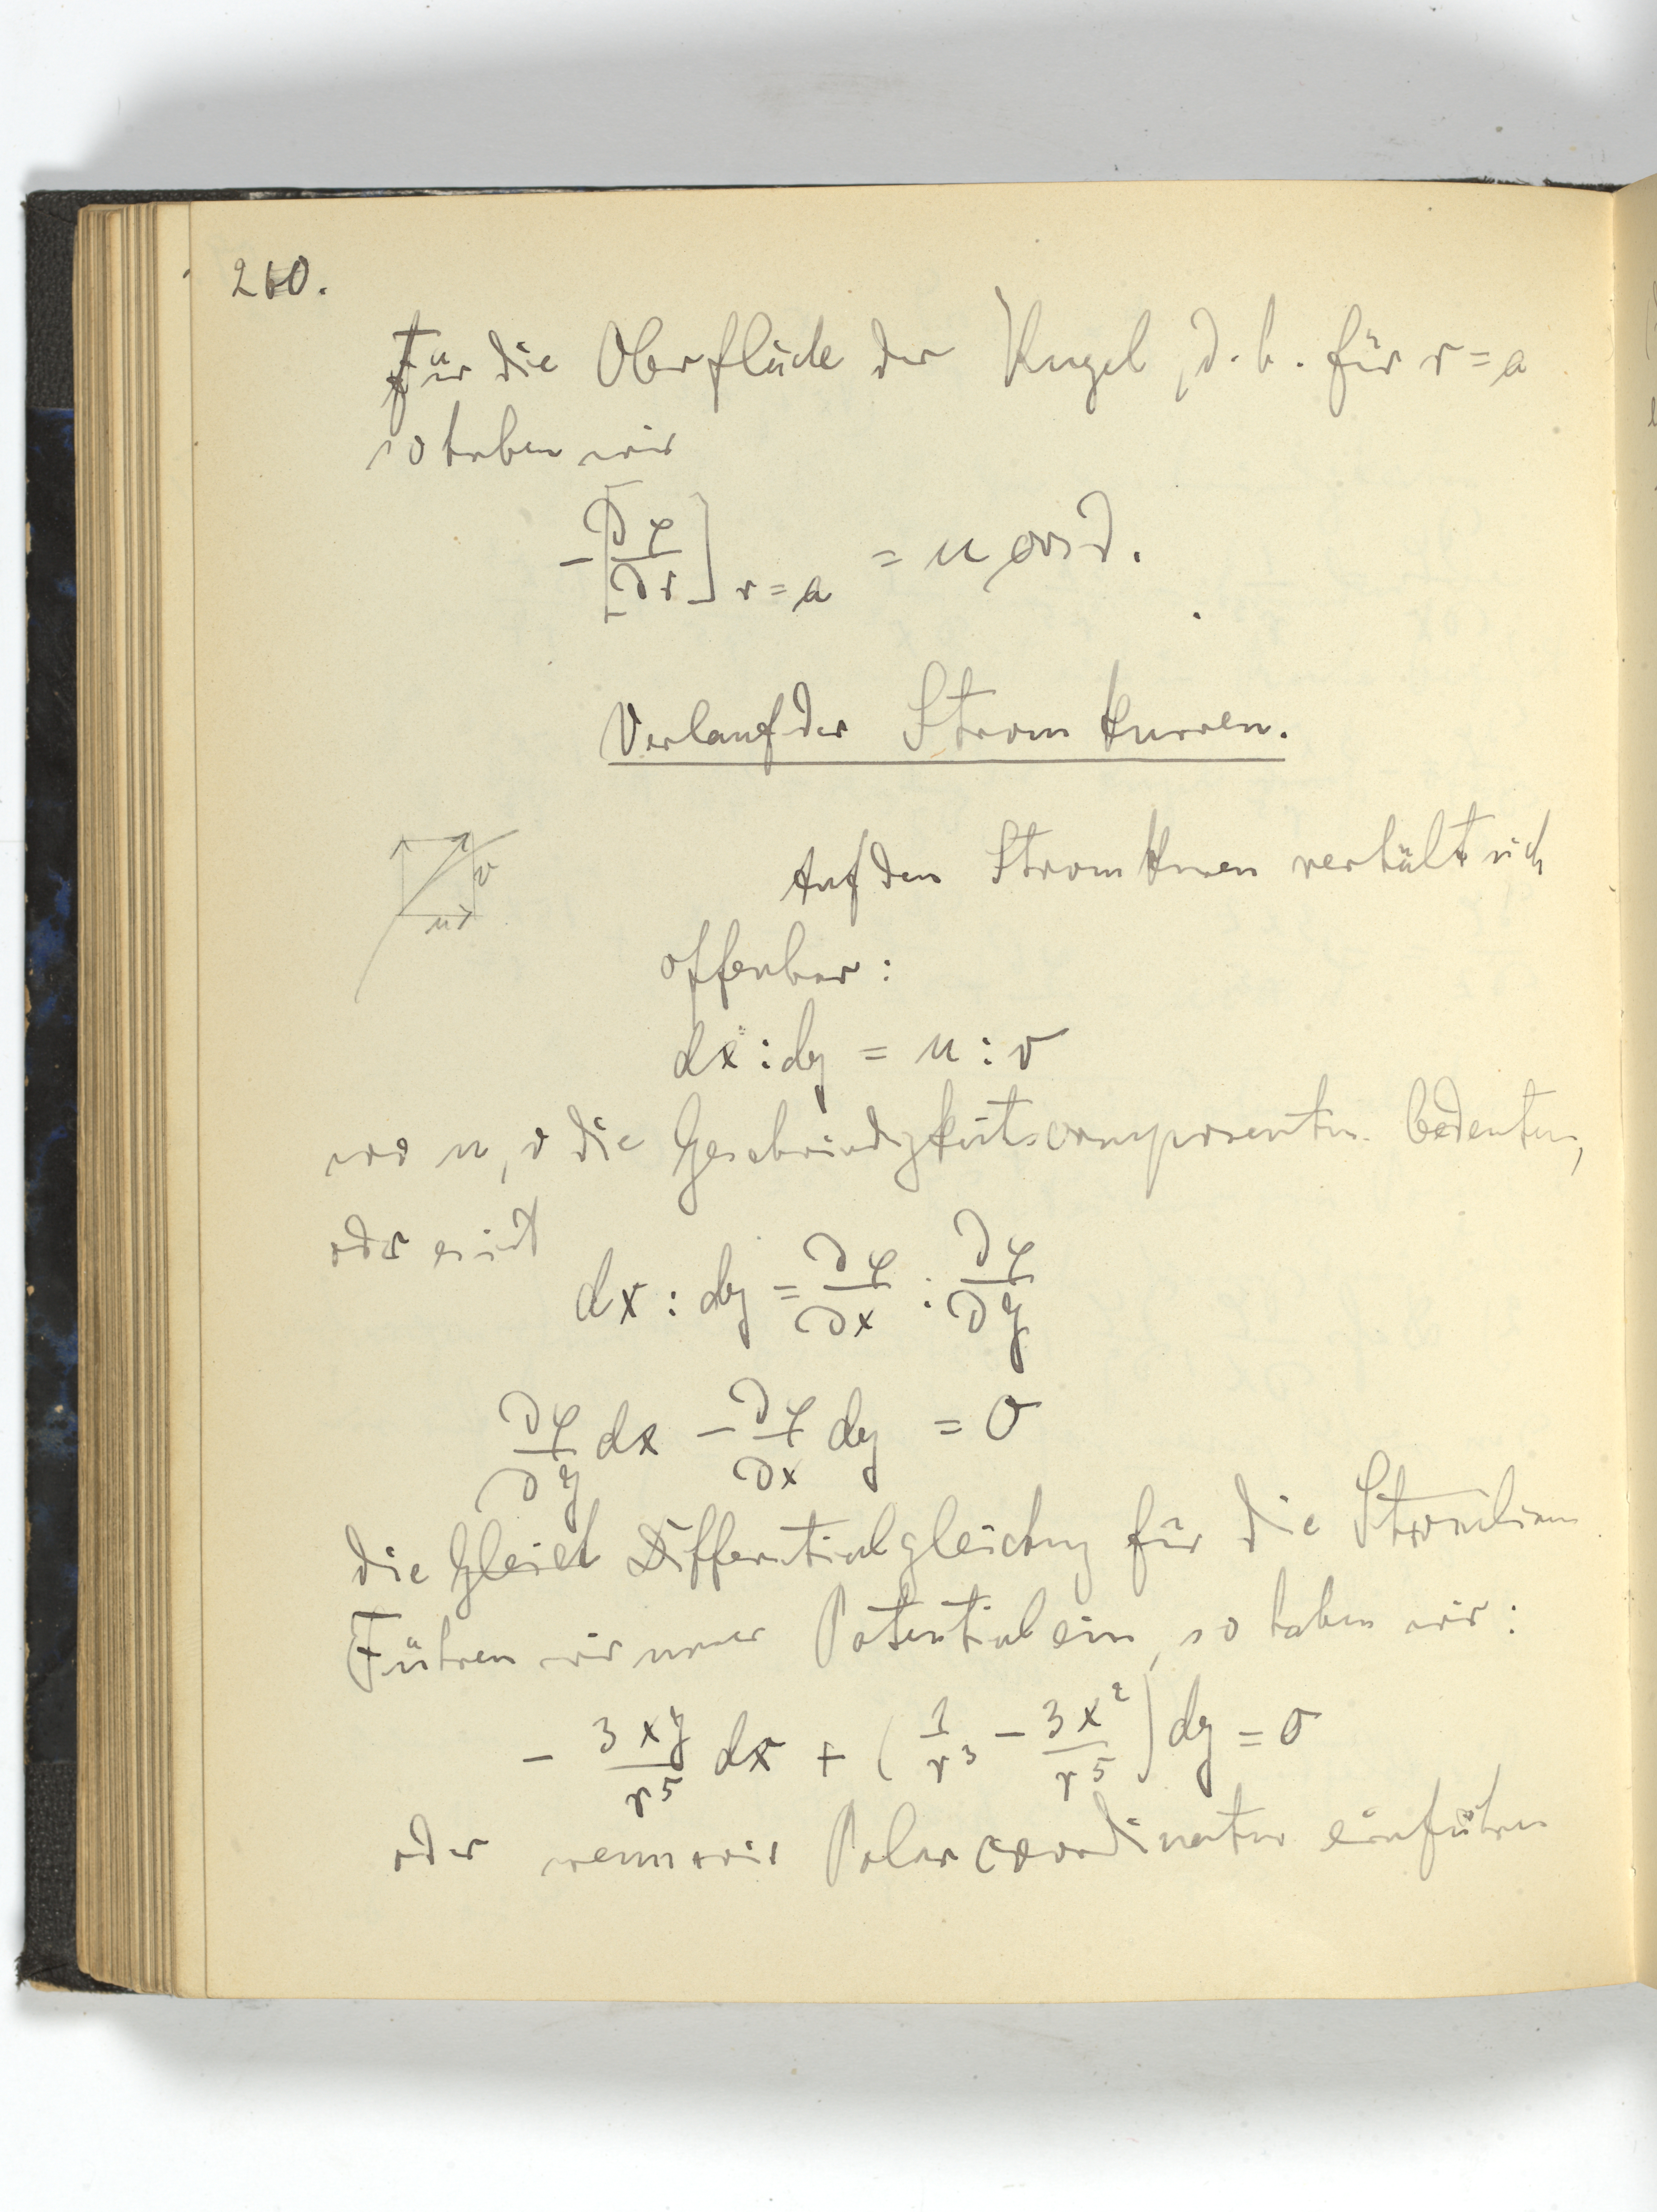 260.
Für die Oberfläche der Kugel, d. h. für r = a
so haben wir
- [∂φ/∂r] r = a = u cos ϑ.
Verlauf der Stromkurven.
Auf den Stromkurven verhält sich
v
u
offenbar:
dx : dy = u : v
wo u, v die Geschwindigkeitscomponenten bedeuten,
oder es ist
dx : dy = ∂φ/∂x : ∂φ/∂y
∂φ/∂y dx - ∂φ/∂x dy = 0
die Gleich Differentialgleichung für die Stromlinien
Führen wir unser Potential ein, so haben wir:
- 3xy/r⁵ dx + (1/r³ - 3x²/r⁵) dy = 0
oder wenn wir Polarcoordinaten einführen